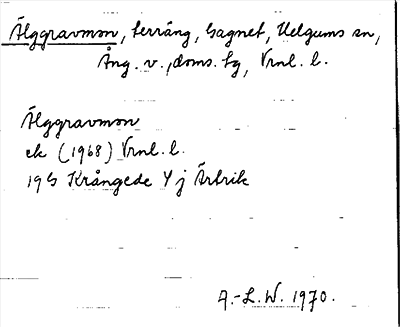 Älggravmon, terräng, Gagnet, Helgums sn,
Ång. v., doms. lg, Vrnl. l.
Älggravmon
ek (1968) Vrnl. l.
19 G Krångede Y j
A.-L.W. 1970.